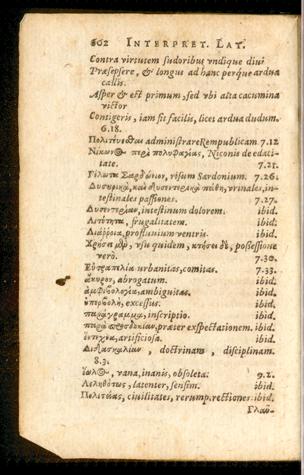 602 INTERPRET. LAT.
Contra virtutem sudoribus vndique diui
Præsepsere, & longus ad hanc perque ardua
callis.
Asper & est primum, sed vbi alta cacumina
victor
Contigeris, iam sit facilis, licet ardua dudum.
6.18.
Πολιτεύεσθαι administrare Rempublicam 7.12
περὶ πολυφαγίας, Niconis de edaci-
tate. 7.25.
Γέλωτα Σαρδώνιον, risum Sardonium. 7.26.
Δυσουρικὰ, καὶ δυσεντερικὰ πάθη, vrinales, in-
testinales passiones. 7.27.
Δυσεντερίαν, intestinum dolorem. ibid.
Λιτότητα, frugalitatem. ibid.
Διάῤῥοια, profluuium ventris. ibid.
Χρήσει μὲν, vsu quidem, κτήσει δὲ, possessione
verò. 7.30.
Εὐτραπελία vrbanitas, comitas. 7.33.
ἄκυρον, abrogatum. ibid.
ἀμφιβολογία, ambiguitas. ibid.
ὑπερβολὴ, excessus. ibid.
παράγραμμα, inscriptio. ibid.
παρὰ προσδοκίαν, præter exspectationem. ibid.
ἔντεχνα, artificiosa. ibid.
Διδασκαλίαν, doctrinam, disciplinam.
8.3.
ἕωλος, vana, inanis, obsoleta. 9.2.
Λεληθότως, latenter, sensim. ibid.
Πολιτείας, ciuilitates, rerump. rectiones. ibid.
Γλαῦ-